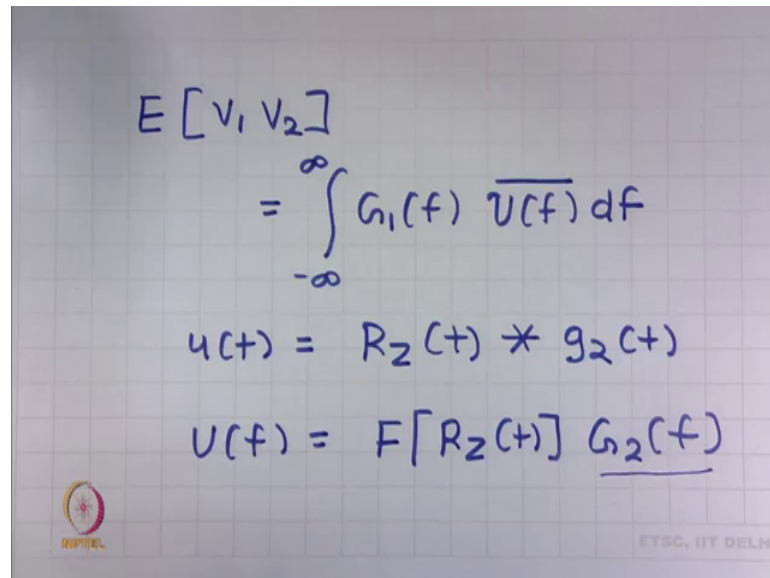 E[V₁ V₂]
= ∫_{-∞}^{∞} G₁(f) \overline{U(f)} df
u(t) = R_Z(t) * g₂(t)
U(f) = F[R_Z(t)] G₂(f)
NPTEL
ETSC, IIT DELH